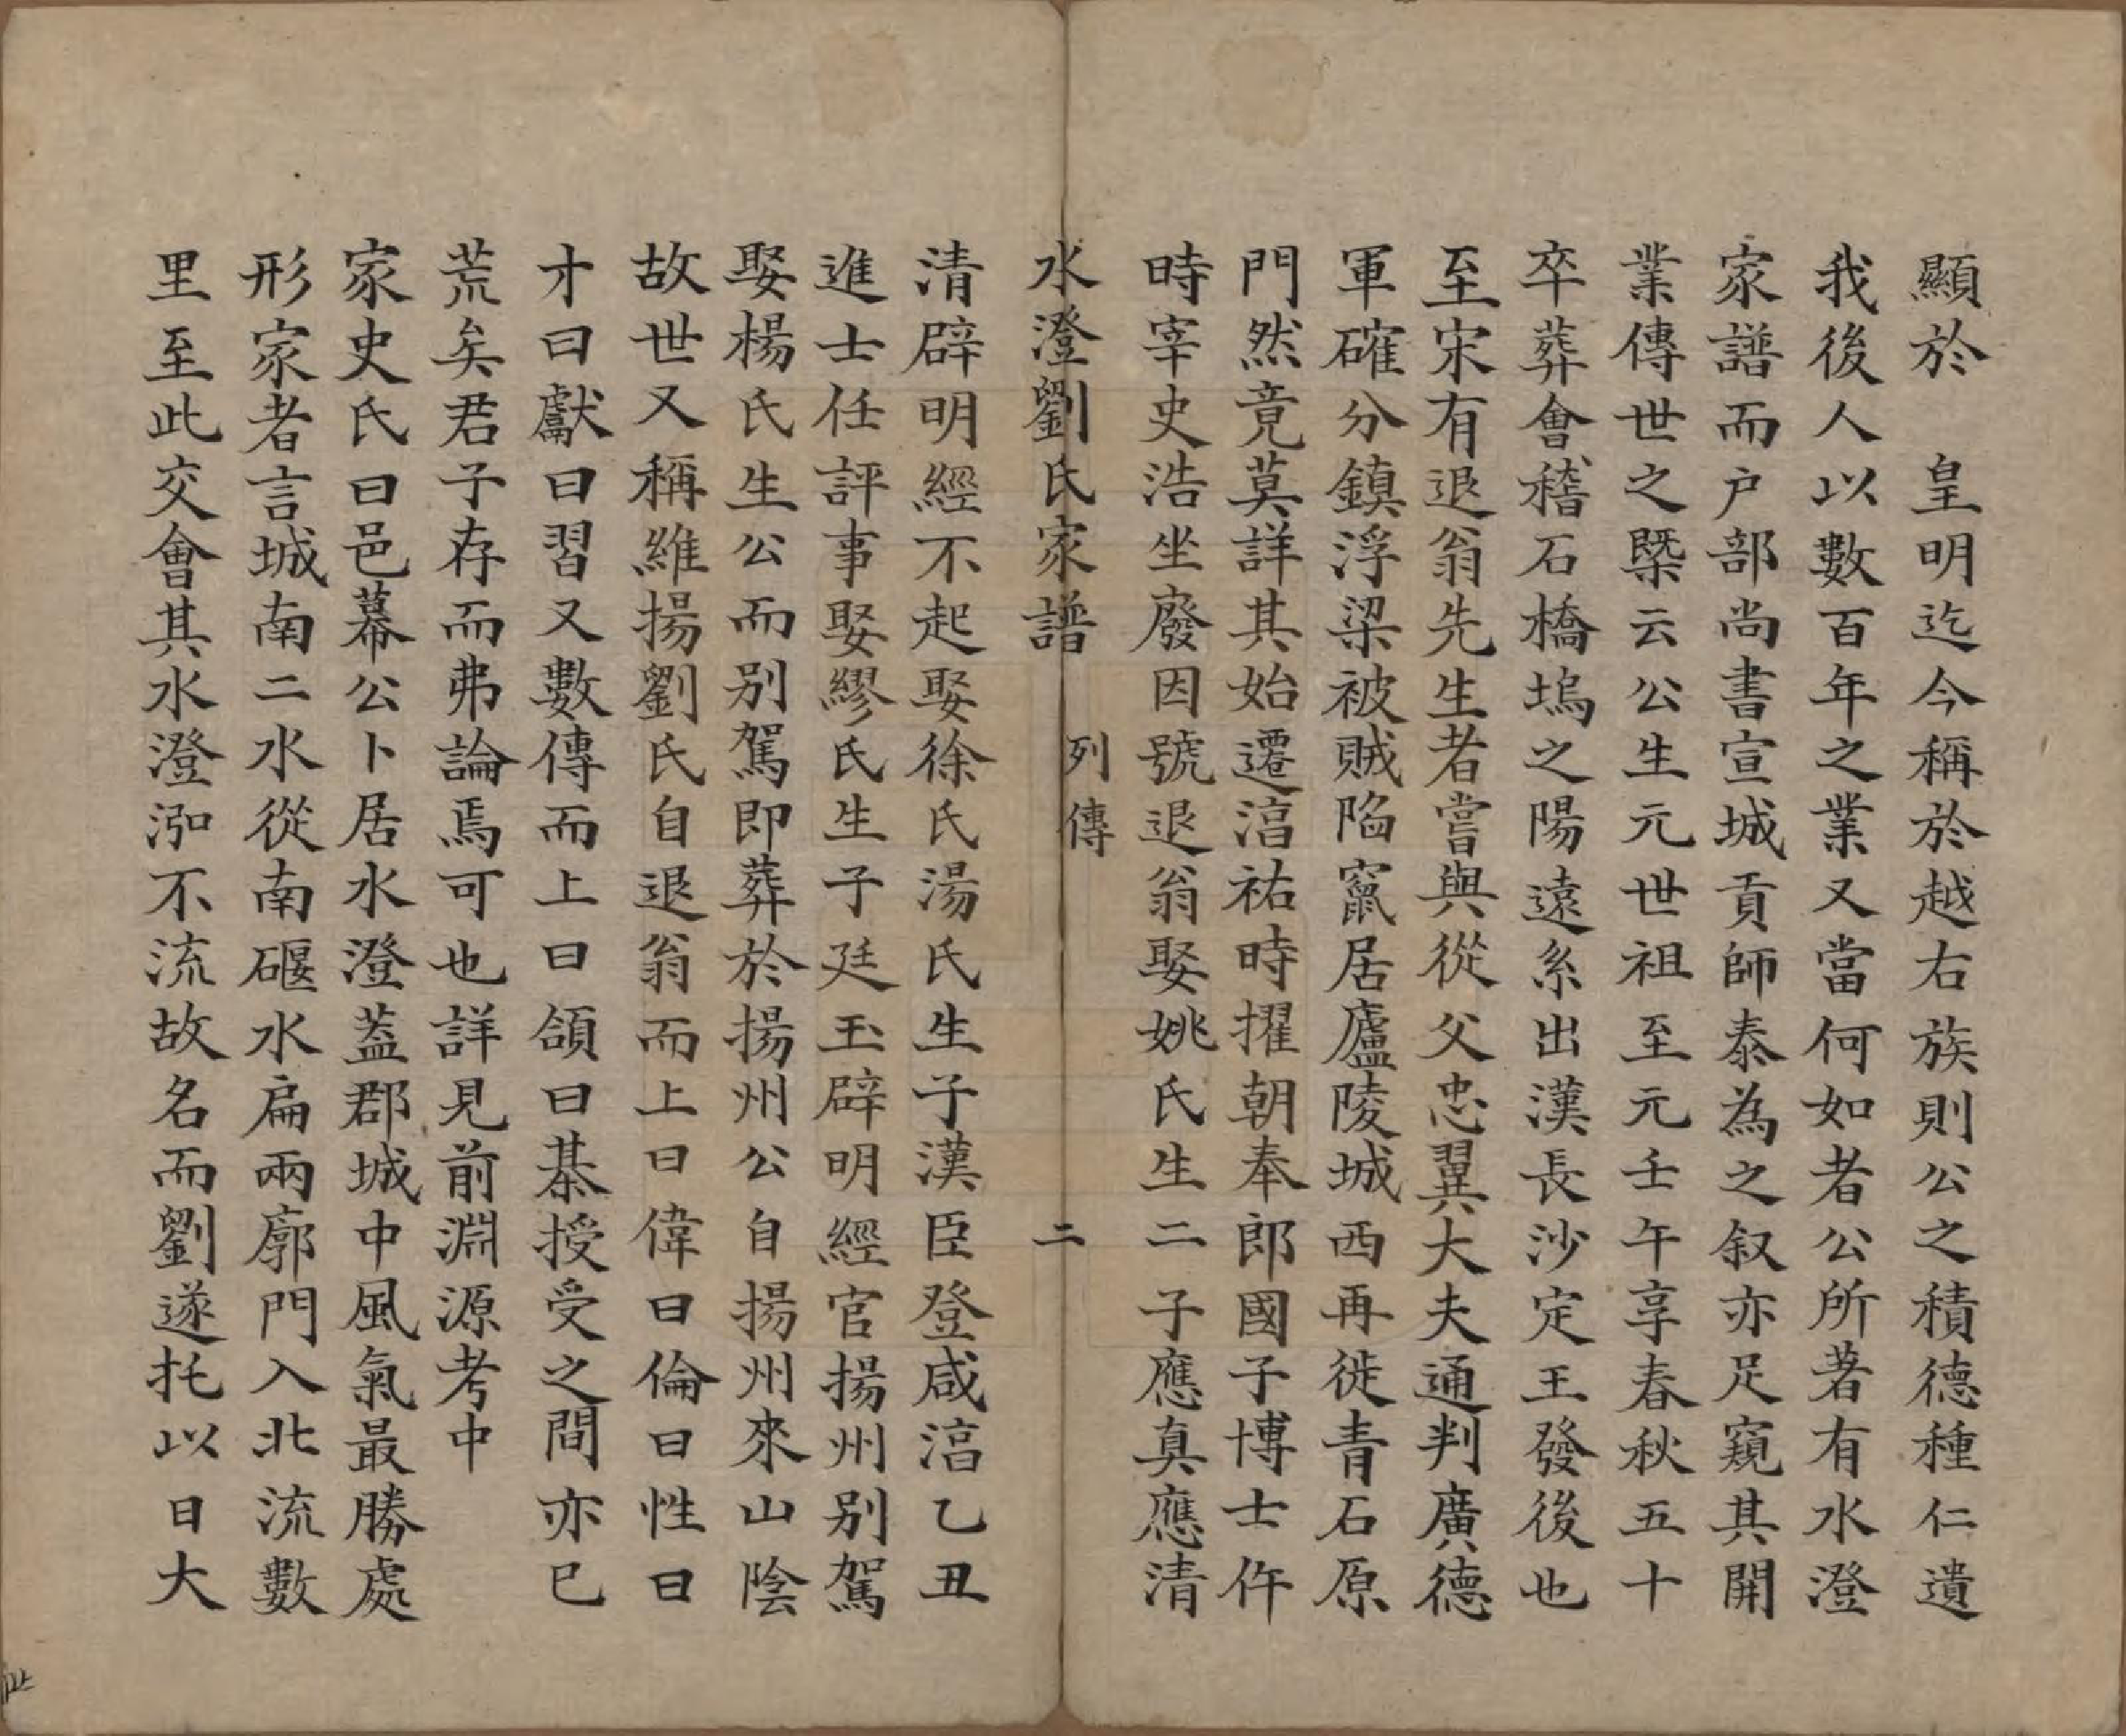 顯於　皇明迄今稱於越右族則公之積德種仁遺
我後人以數百年之業又當何如者公所著有水澄
家譜而户部尚書宣城貢師泰為之叙亦足窺其開
業傳世之槩云公生元世祖至元壬午享春秋五十
卒葬會稽石橋塢之陽遠系出漢長沙定王發後也
至宋有退翁先生者嘗與從父忠翼大夫通判廣德
軍確分鎮浮梁被賊陷竄居廬陵城西再徙青石原
門然竟莫詳其始遷湻祐時擢朝奉郎國子博士仵
時宰史浩坐廢因號退翁娶姚氏生二子應真應清
水澄劉氏家譜　列傳　二
清辟明經不起娶徐氏湯氏生子漢臣登咸湻乙丑
進士任評事娶繆氏生子廷玉辟明經官揚州别駕
娶楊氏生公而别駕即葬於揚州公自揚州來山陰
故世又稱維揚劉氏自退翁而上曰偉曰倫曰性曰
才曰獻曰習又數傳而上曰頜曰棊授受之間亦已
荒矣君子存而弗論焉可也詳見前淵源考中
家史氏曰邑幕公卜居水澄蓋郡城中風氣最勝處
形家者言城南二水從南堰水扁兩廓門入北流數
里至此交會其水澄泓不流故名而劉遂托以日大